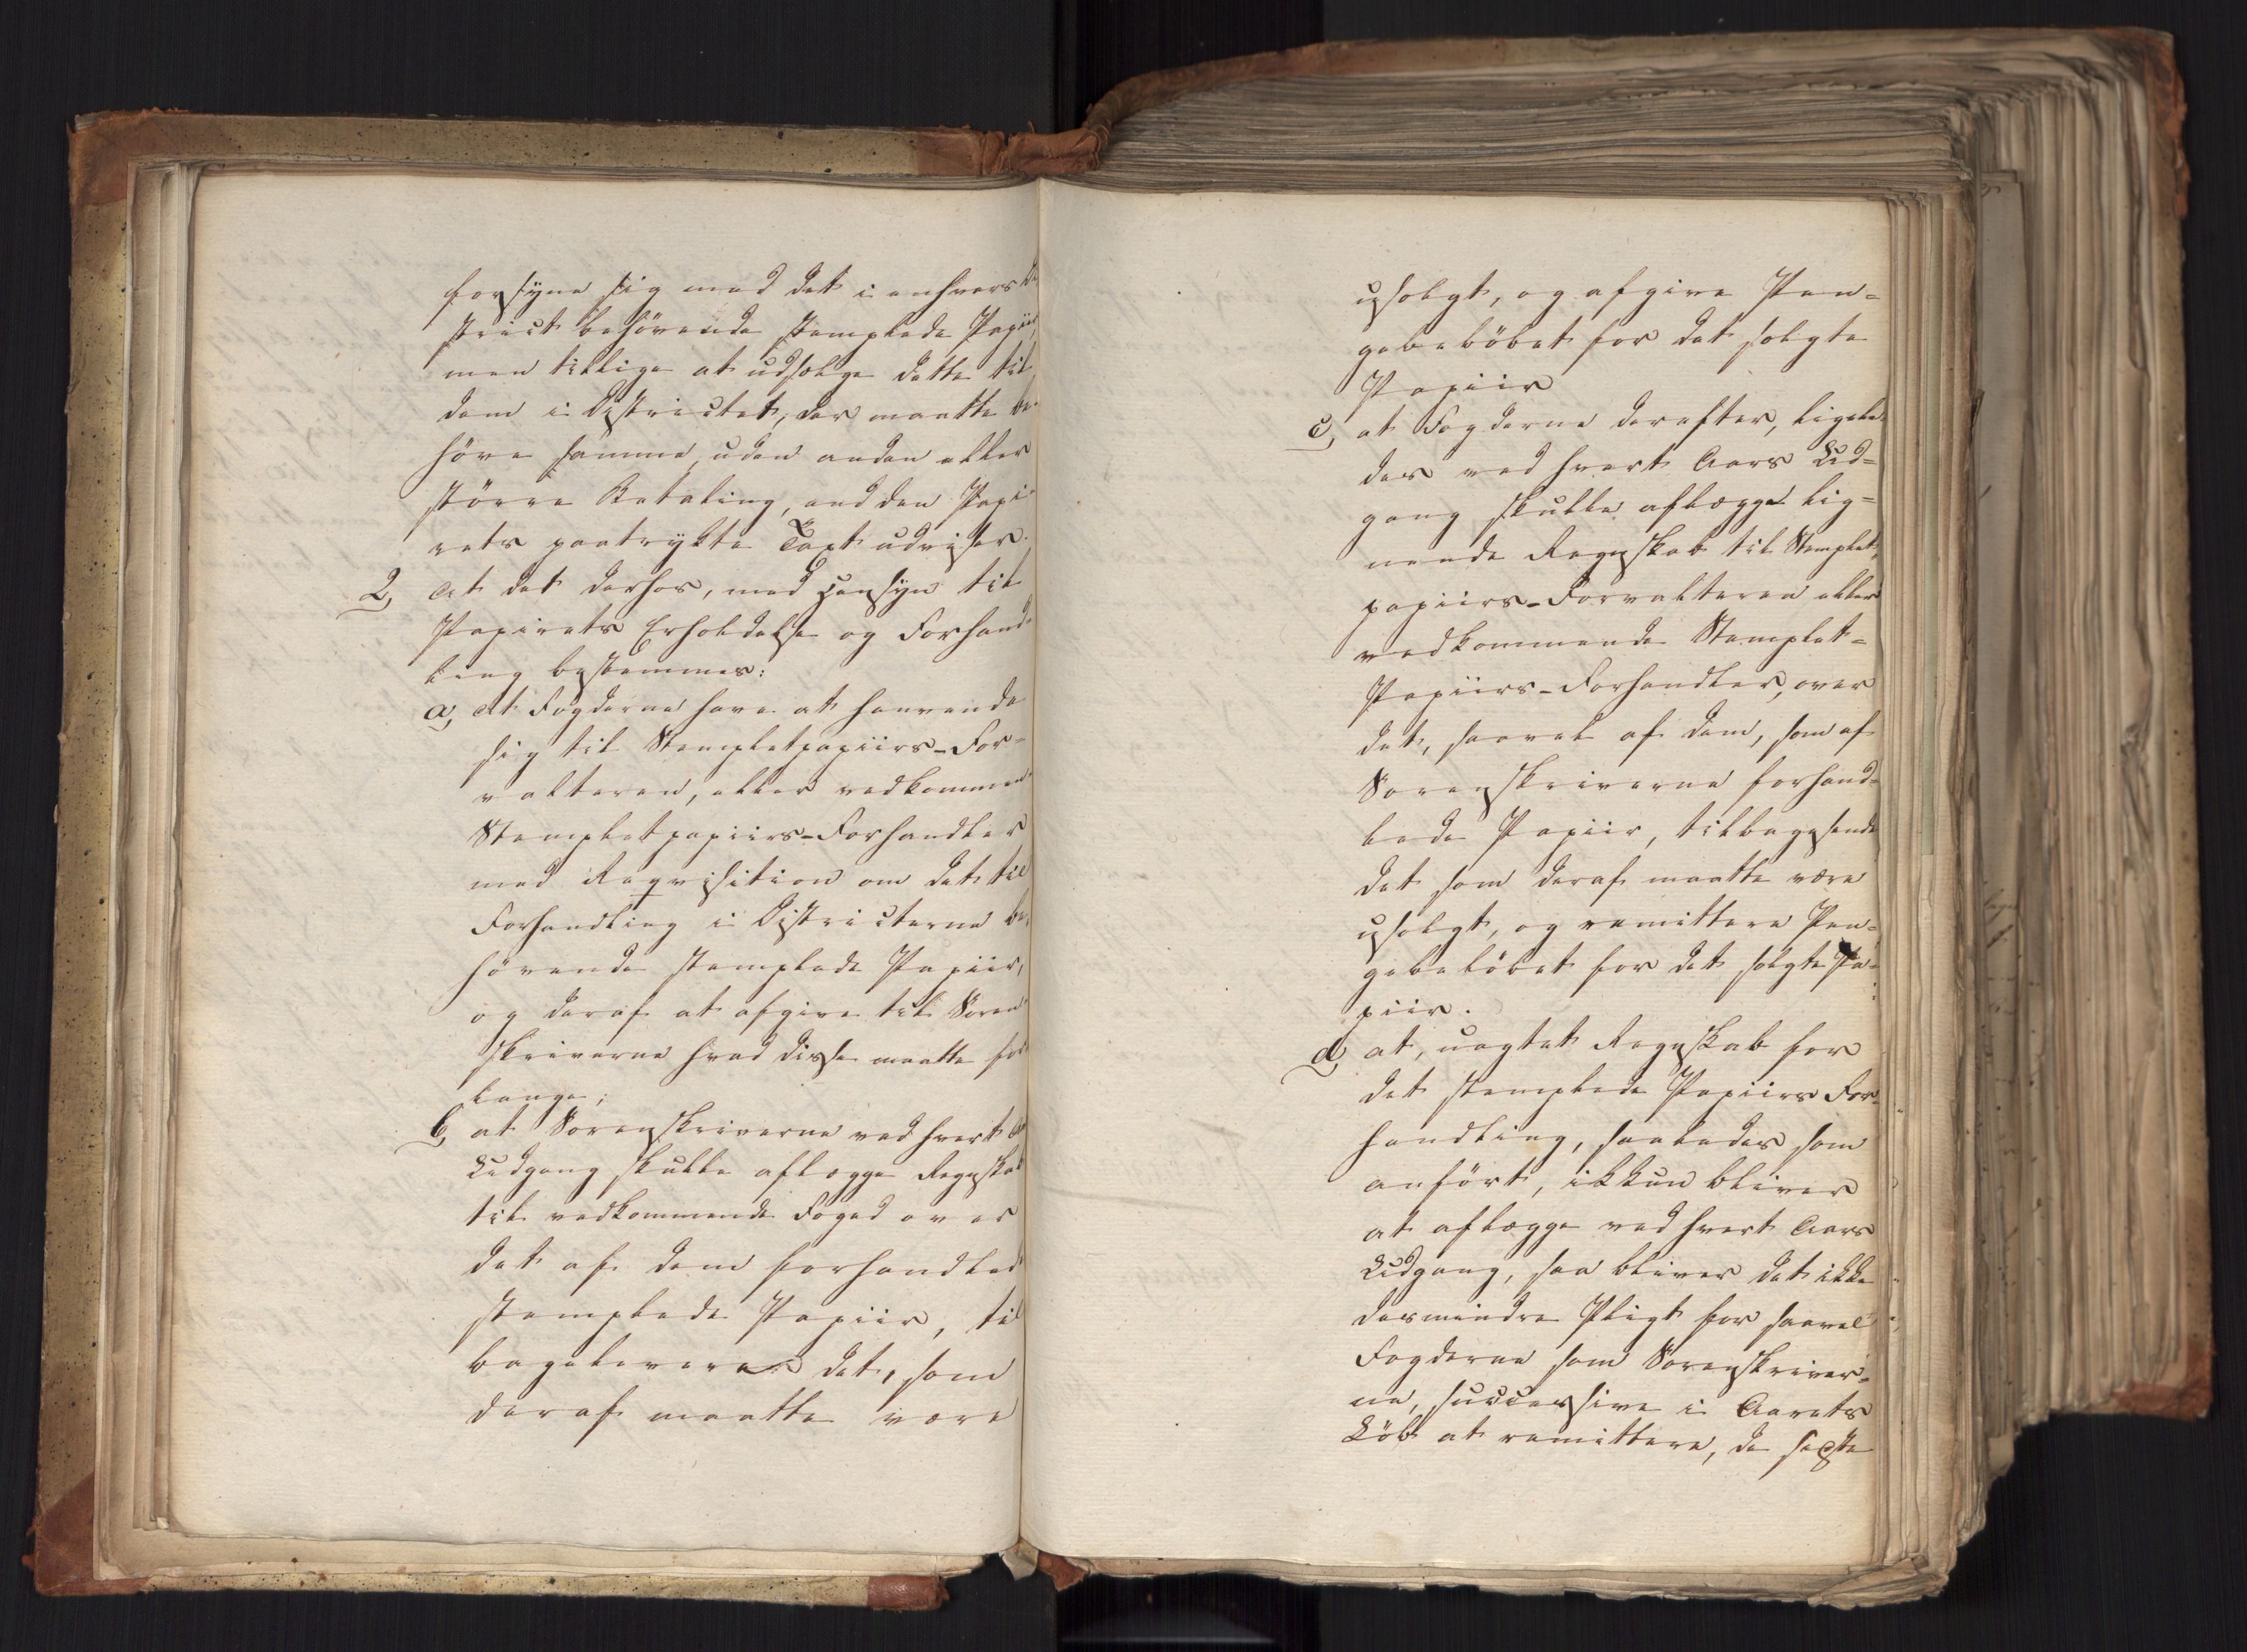 forsyne sig med det i enhvers Di-
strict behövende stemplede Papiir,
men tillige at udsælge dette til
dem i Districtet, der maatte be-
höve samme, uden anden eller
större Betaling, end den Papi-
rets paatrykte Taxt udviser.
2, At det derhos, med Hensyn til
Papirets Erholdelse og Forhand-
ling bestemmes:
a, At Fogderne have at henvende
sig til Stempletpapiirs-For-
valteren, eller vedkommen
Stempletpapiirs-Forhandler
med Reqvisition om det til
Forhandling i Districterne be-
hövende stemplede Papiir,
og deraf at afgive til Soren-
skriverne hvad disse maatte for-
lange;
b, at Sorenskriverne ved hvert
Udgang skulle aflægge Regnskab
til vedkommende Foged over
det af dem forhandlede
stemplede Papiir, til
bagelevere det, som
deraf maatte være
usolgt, og afgive Pen-
gebelöbet for det solgte
Papiir
c, at Fogderne derefter, ligele-
des ved hvert Aars Ud-
gang skulle aflægge lig-
nende Regnskab til Stemplet-
papiirs-Forvalteren eller
vedkommende Stemplet-
Papiirs-Forhandler, over
det, saavel af dem, som af
Sorenskriverne forhand-
lede Papiir, tilbagesende
det som deraf maatte være
usolgt, og remittere Pen-
gebelöbet for det solgte Pa-
piir.
d, at, uagtet Regnskab for
det stemplede Papiirs For-
handling, saaledes som
anfört, ikkun bliver
at aflægge ved hvert Aars
Udgang, saa bliver det ikke
desmindre Pligt for saavel
Fogderne som Sorenskriver-
ne, successive i Aarets
Löb at remittere, de sidste